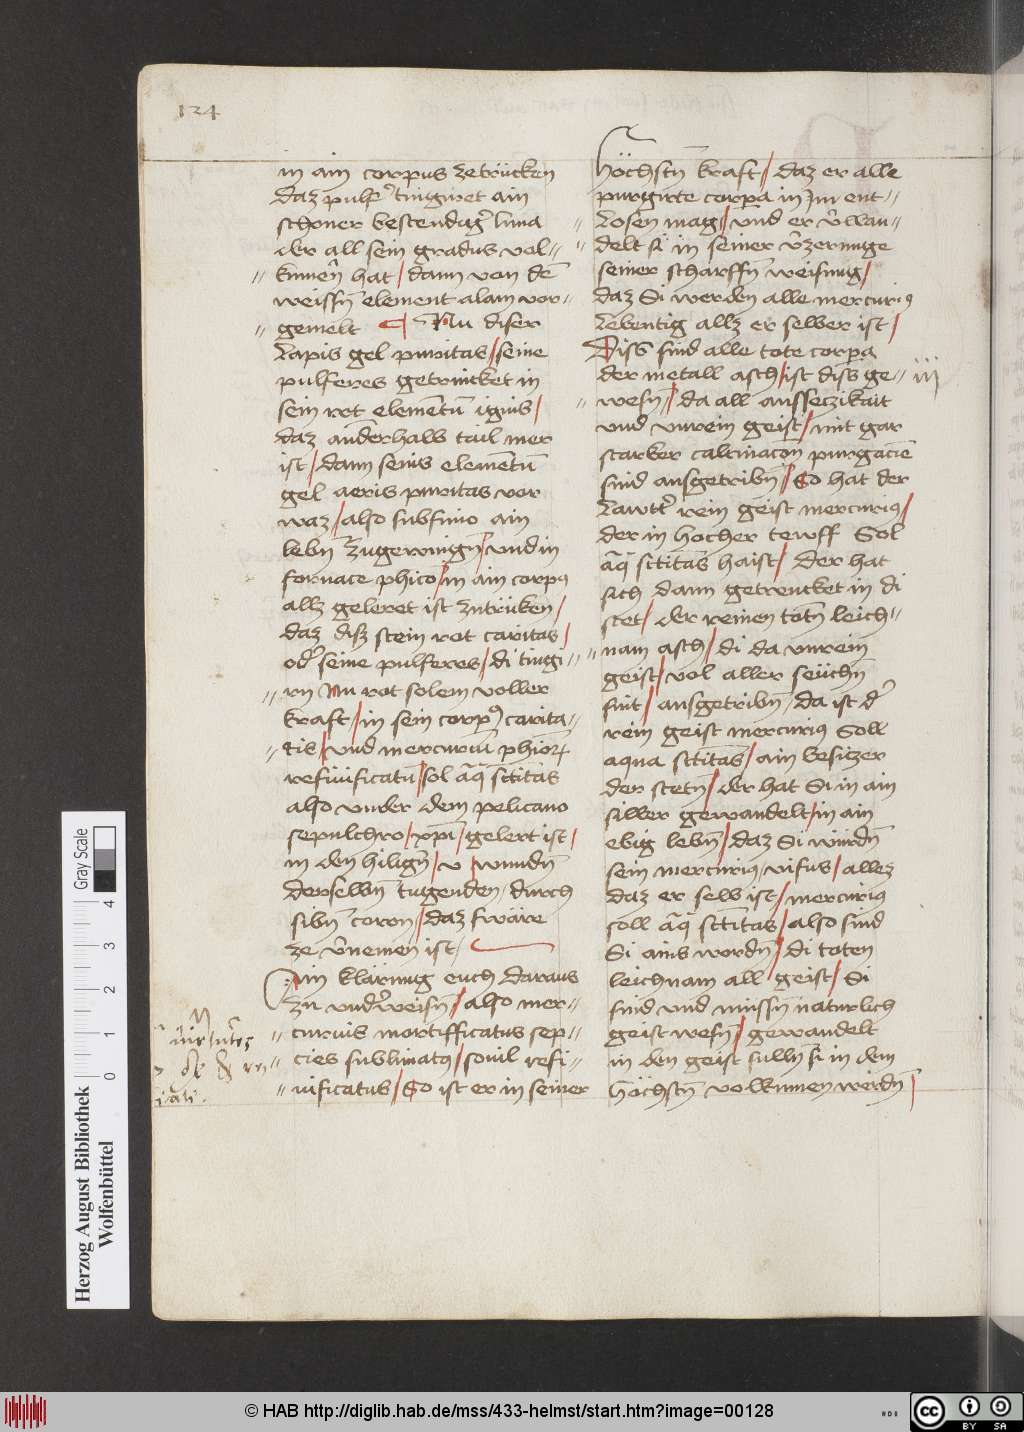 124
in ain corpus zetrücken
daz pulfer tingiret ain
schoner bestendager luna
der all sein gradus vol=
kumen hat / dann von dē
weissen element alam vor=
gemelt ¶ Nu diser
Lapis gel puritas / seine
pulferes getrincket in
sein rot elementū ignis /
daz anderhalb tail mer
ist / dann seins elementū
gel aeris puritas vor
waz / also subfimo ain
lebn zugewingn / vnd in
fornace phico / in ain corpꝯ
allz geleret ist zutrüken /
daz disz stein rot caritas /
oder seine pulferes / di tingi=
rn Im rot solem voller
kraft / in sein corpꝯ carita=
tis / vnd mercuriū phioꝝ
refiuificatū / sol aq̄ sctitās
also vnder dem pelicano
sepulchro / xpī / gelert ist /
in den hilign / v / wundn
derselbn tugenden / durch
sibn corrn / daz swäre
ze v̄nemen ist /
Ain klärung euch daraus
zu vnderweisn / also mer=
curius mortifficatus sep=
cies sublimatꝯ / souil refi=
uificatus / So ist er in seiner
höchstn kraft / daz er alle
purgirte corpa in Im ent=
Losen mag / vnd er v̄wan=
delt si in seiner v̄zerunge
seiner scharffn weisung /
daz Si werden alle mercuriꝯ
Lebentig allz er selber ist /
Diss sind alle tote corpa
der metall asch / ist diss ge=
wesn / da all ausseczikait
vnd vnrein geist / mit gar
starker calcinacon purgaciē
sind ausgetribn / So hat der
Lawtter rein geist mercurius /
der in hocher tewff Sol
aq̄ sctitās haist / der hat
sich dann getrencket in di
stet / der reinen totn leich=
nam asch / di da vnrein
geist / vol aller seüchn
sint / ausgetribn / da ist der
rein geist mercuriꝯ Soll
aqua sctitās / ain besitzer
der stetn / der hat Si in ain
silber gewandelt / in ain
ebig lebn / daz Si würdn
sein mercuriꝯ / vifus / allez
daz er selb ist / mercuriꝯ
soll aq̄ sctitas / also sind
Si ains wordn / di toten
leichnam all geist / Si
sind vnd müssn naturlich
geist wesn / gewandelt
in den geist sulln si in dem
höchstn volkumen werdn /
iij
Herzog August Bibliothek
Wolfenbüttel
Gray Scale
0 1 2 3 4
© HAB http://diglib.hab.de/mss/433-helmst/start.htm?image=00128
HAB
cc BY SA